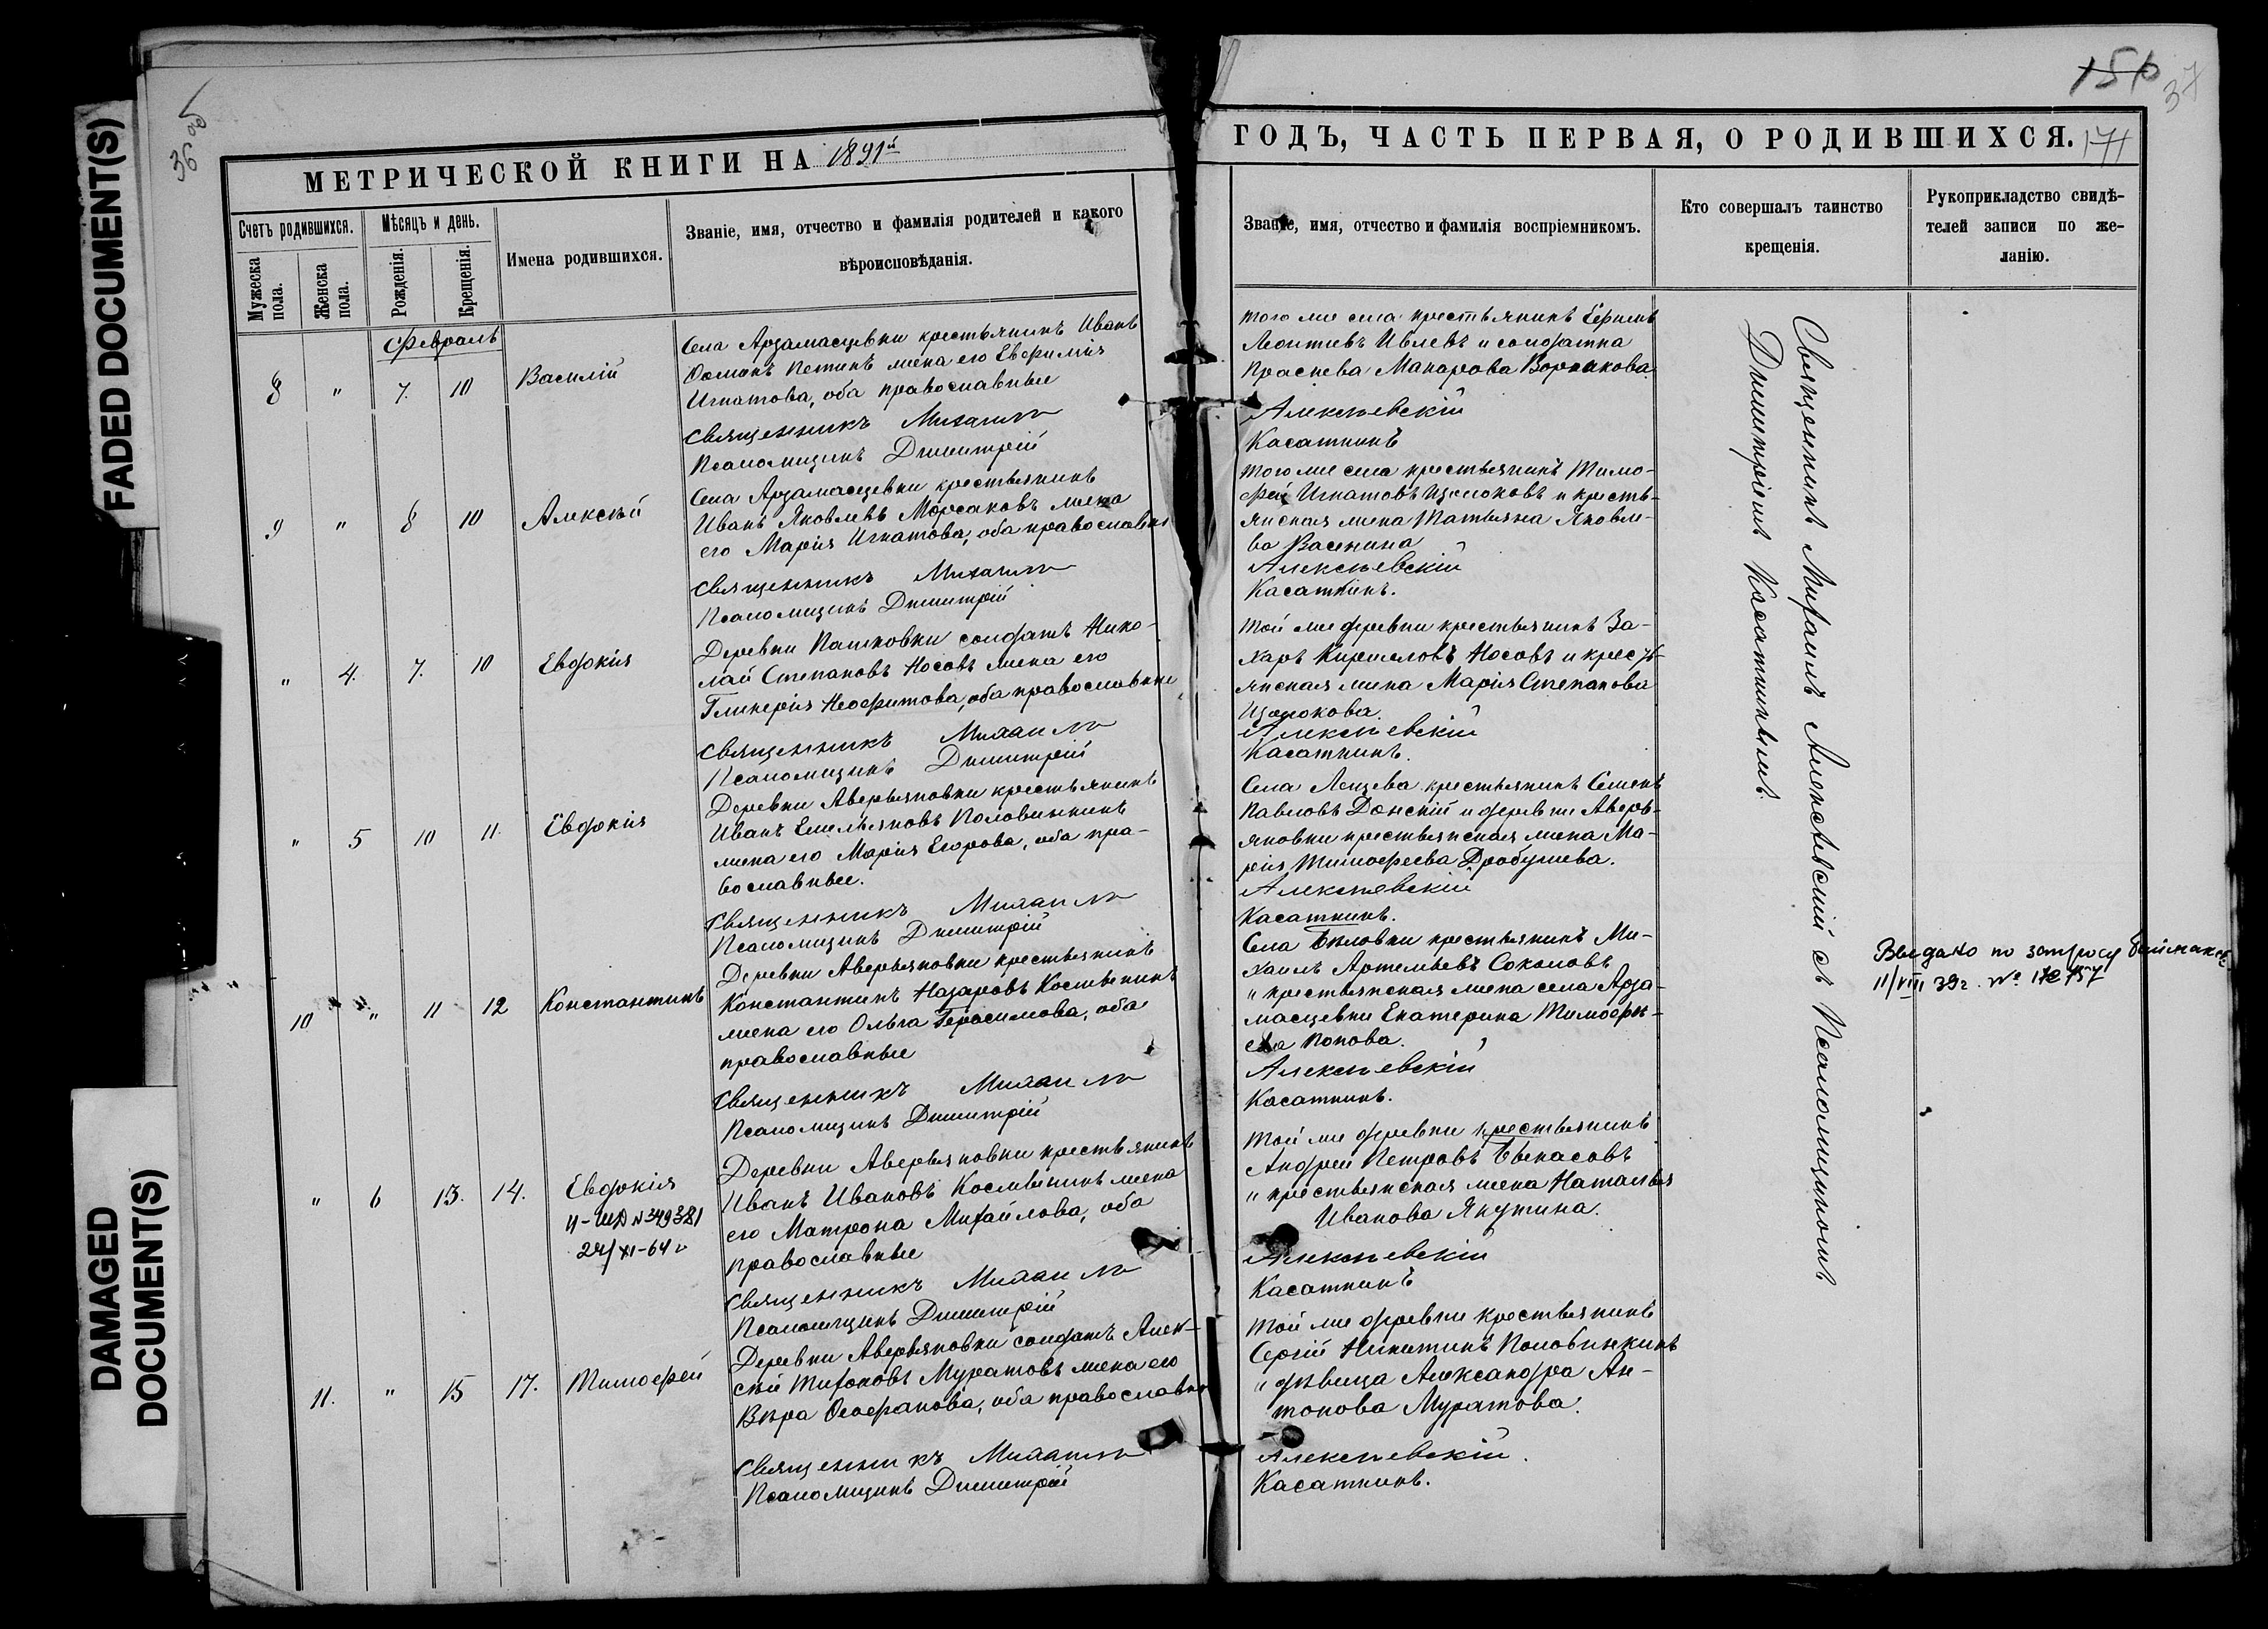 FADED DOCUMENT(S)
DAMAGED
DOCUMENT(S)
36 об
МЕТРИЧЕСКОЙ КНИГИ НА 1891й
Счетъ родившихся.
Мужеска пола.
Женска пола.
Мѣсяцъ и день.
Рожденія.
Крещенія.
Имена родившихся.
Званіе, имя, отчество и фамилія родителей и какого
вѣроисповѣданія.
Февраль
8 " 7. 10 Василій
Села Арзамасцевки крестьянинъ Иванъ
Петинъ жена его Евфимія
Игнатова, оба православные
Священникъ Михаилъ
Псаломщикъ Димитрій
9 " 8 10 Алексѣй
Села Арзамасцевки крестьянинъ
Иванъ Яковлевъ Морсаковъ жена
его Марія Игнатова, оба православн
Священникъ Михаилъ
Псаломщикъ Димитрій
" 4. 7. 10 Евдокія
Деревни Пашковки солдатъ Нико-
лай Степановъ Носовъ жена его
Гликерія Неофитова, оба православные
Священникъ Михаилъ
Псаломщикъ Димитрій
" 5 10 11. Евдокія
Деревни Аверьяновки крестьянинъ
Иванъ Емельяновъ Половинкинъ
жена его Марія Егорова, оба пра-
вославные.
Священникъ Михаилъ
Псаломщикъ Димитрій
10 " 11 12 Константинъ
Деревни Аверьяновки крестьянинъ
Константинъ Назаровъ
жена его Ольга Герасимова, оба
православные
Священникъ Михаилъ
Псаломщикъ Димитрій
" 6 13. 14. Евдокія
II-ШД N349381
24/XI-64 г
Деревни Аверьяновки крестьянинъ
Иванъ Ивановъ жена
его Матрона Михайлова, оба
православные
Священникъ Михаилъ
Псаломщикъ Димитрій
11. " 15 17. Тимофей
Деревни Аверьяновки солдатъ Алек-
сѣй Тихоновъ Муратовъ жена его
Вѣра Феофанова, оба православные
Священникъ Михаилъ
Псаломщикъ Димитрій
156
37
ГОДЪ, ЧАСТЬ ПЕРВАЯ, О РОДИВШИХСЯ.
171
Званіе, имя, отчество и фамилія воспріемникомъ.
Кто совершалъ таинство
крещенія.
Рукоприкладство свидѣ-
телей записи по же-
ланію.
того же села крестьянинъ Ефимъ
Леонтьевъ Ивлевъ и солдатка
Праскева Макарова Воронкова.
Алексѣевскій
Касаткинъ
того же села крестьянинъ Тимо-
фей Игнатовъ Щолоковъ и кресть-
янская жена Татьяна Яковле-
ва Васенина
Алексѣевскій
Касаткинъ.
Той же деревни крестьянинъ За-
харъ Кирилловъ Носовъ и кресть-
янская жена Марія Степанова
Щолокова.
Алексѣевскій
Касаткинъ.
Села крестьянинъ Семенъ
Павловъ Донскій и деревни Аверь-
яновки крестьянская жена Ма-
рія Тимофеева Дробушева.
Алексѣевскій
Касаткинъ.
Села Бѣловки крестьянинъ Ми-
хаилъ Артемьевъ Соколовъ
и крестьянская жена села Арза-
масцевки Екатерина Тимофѣ-
ева Попова.
Алексѣевскій
Касаткинъ.
Той же деревни крестьянинъ
Андрей Петровъ
и крестьянская жена Наталья
Иванова Якутина.
Алексѣевскій
Касаткинъ
Той же деревни крестьянинъ
Сергій Никитинъ Половинкинъ
и дѣвица Александра Ан-
тонова Муратова.
Алексѣевскій.
Касаткинъ.
Священникъ Михаилъ Алексѣевскій съ Псаломщикомъ
Димитріемъ Касаткинымъ.
Выдано по запросу
11/VIII 39г. №